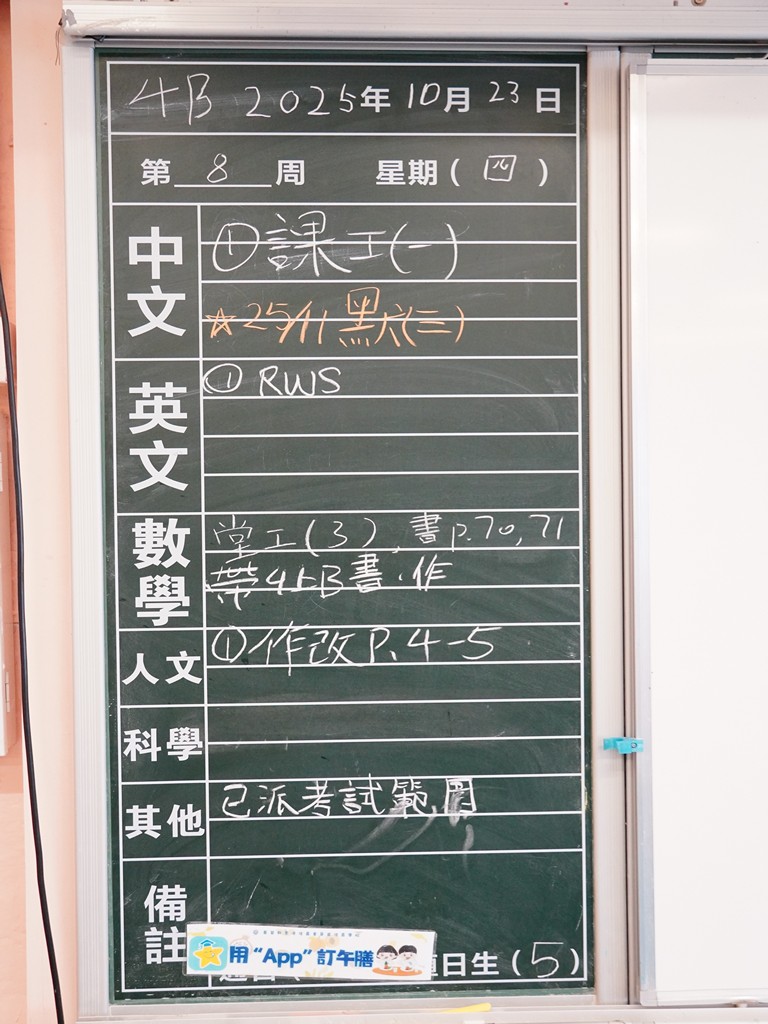 4B 2025年 10月 23日
第 8 周 星期( 四 )
中文
①課工(一)
☆25/11 默六(三)
英文
① RWS
數學
堂工(3), 書p.70,71
帶4上B書.作
人文
①作改P.4-5
科學
其他
已派考試範圍
備註
用“App”訂午膳
日生(5)